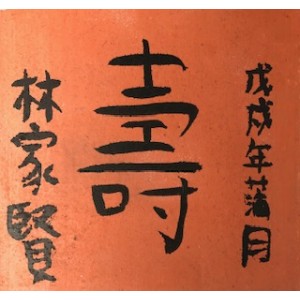 戊戌年蒲月
壽
林家賢